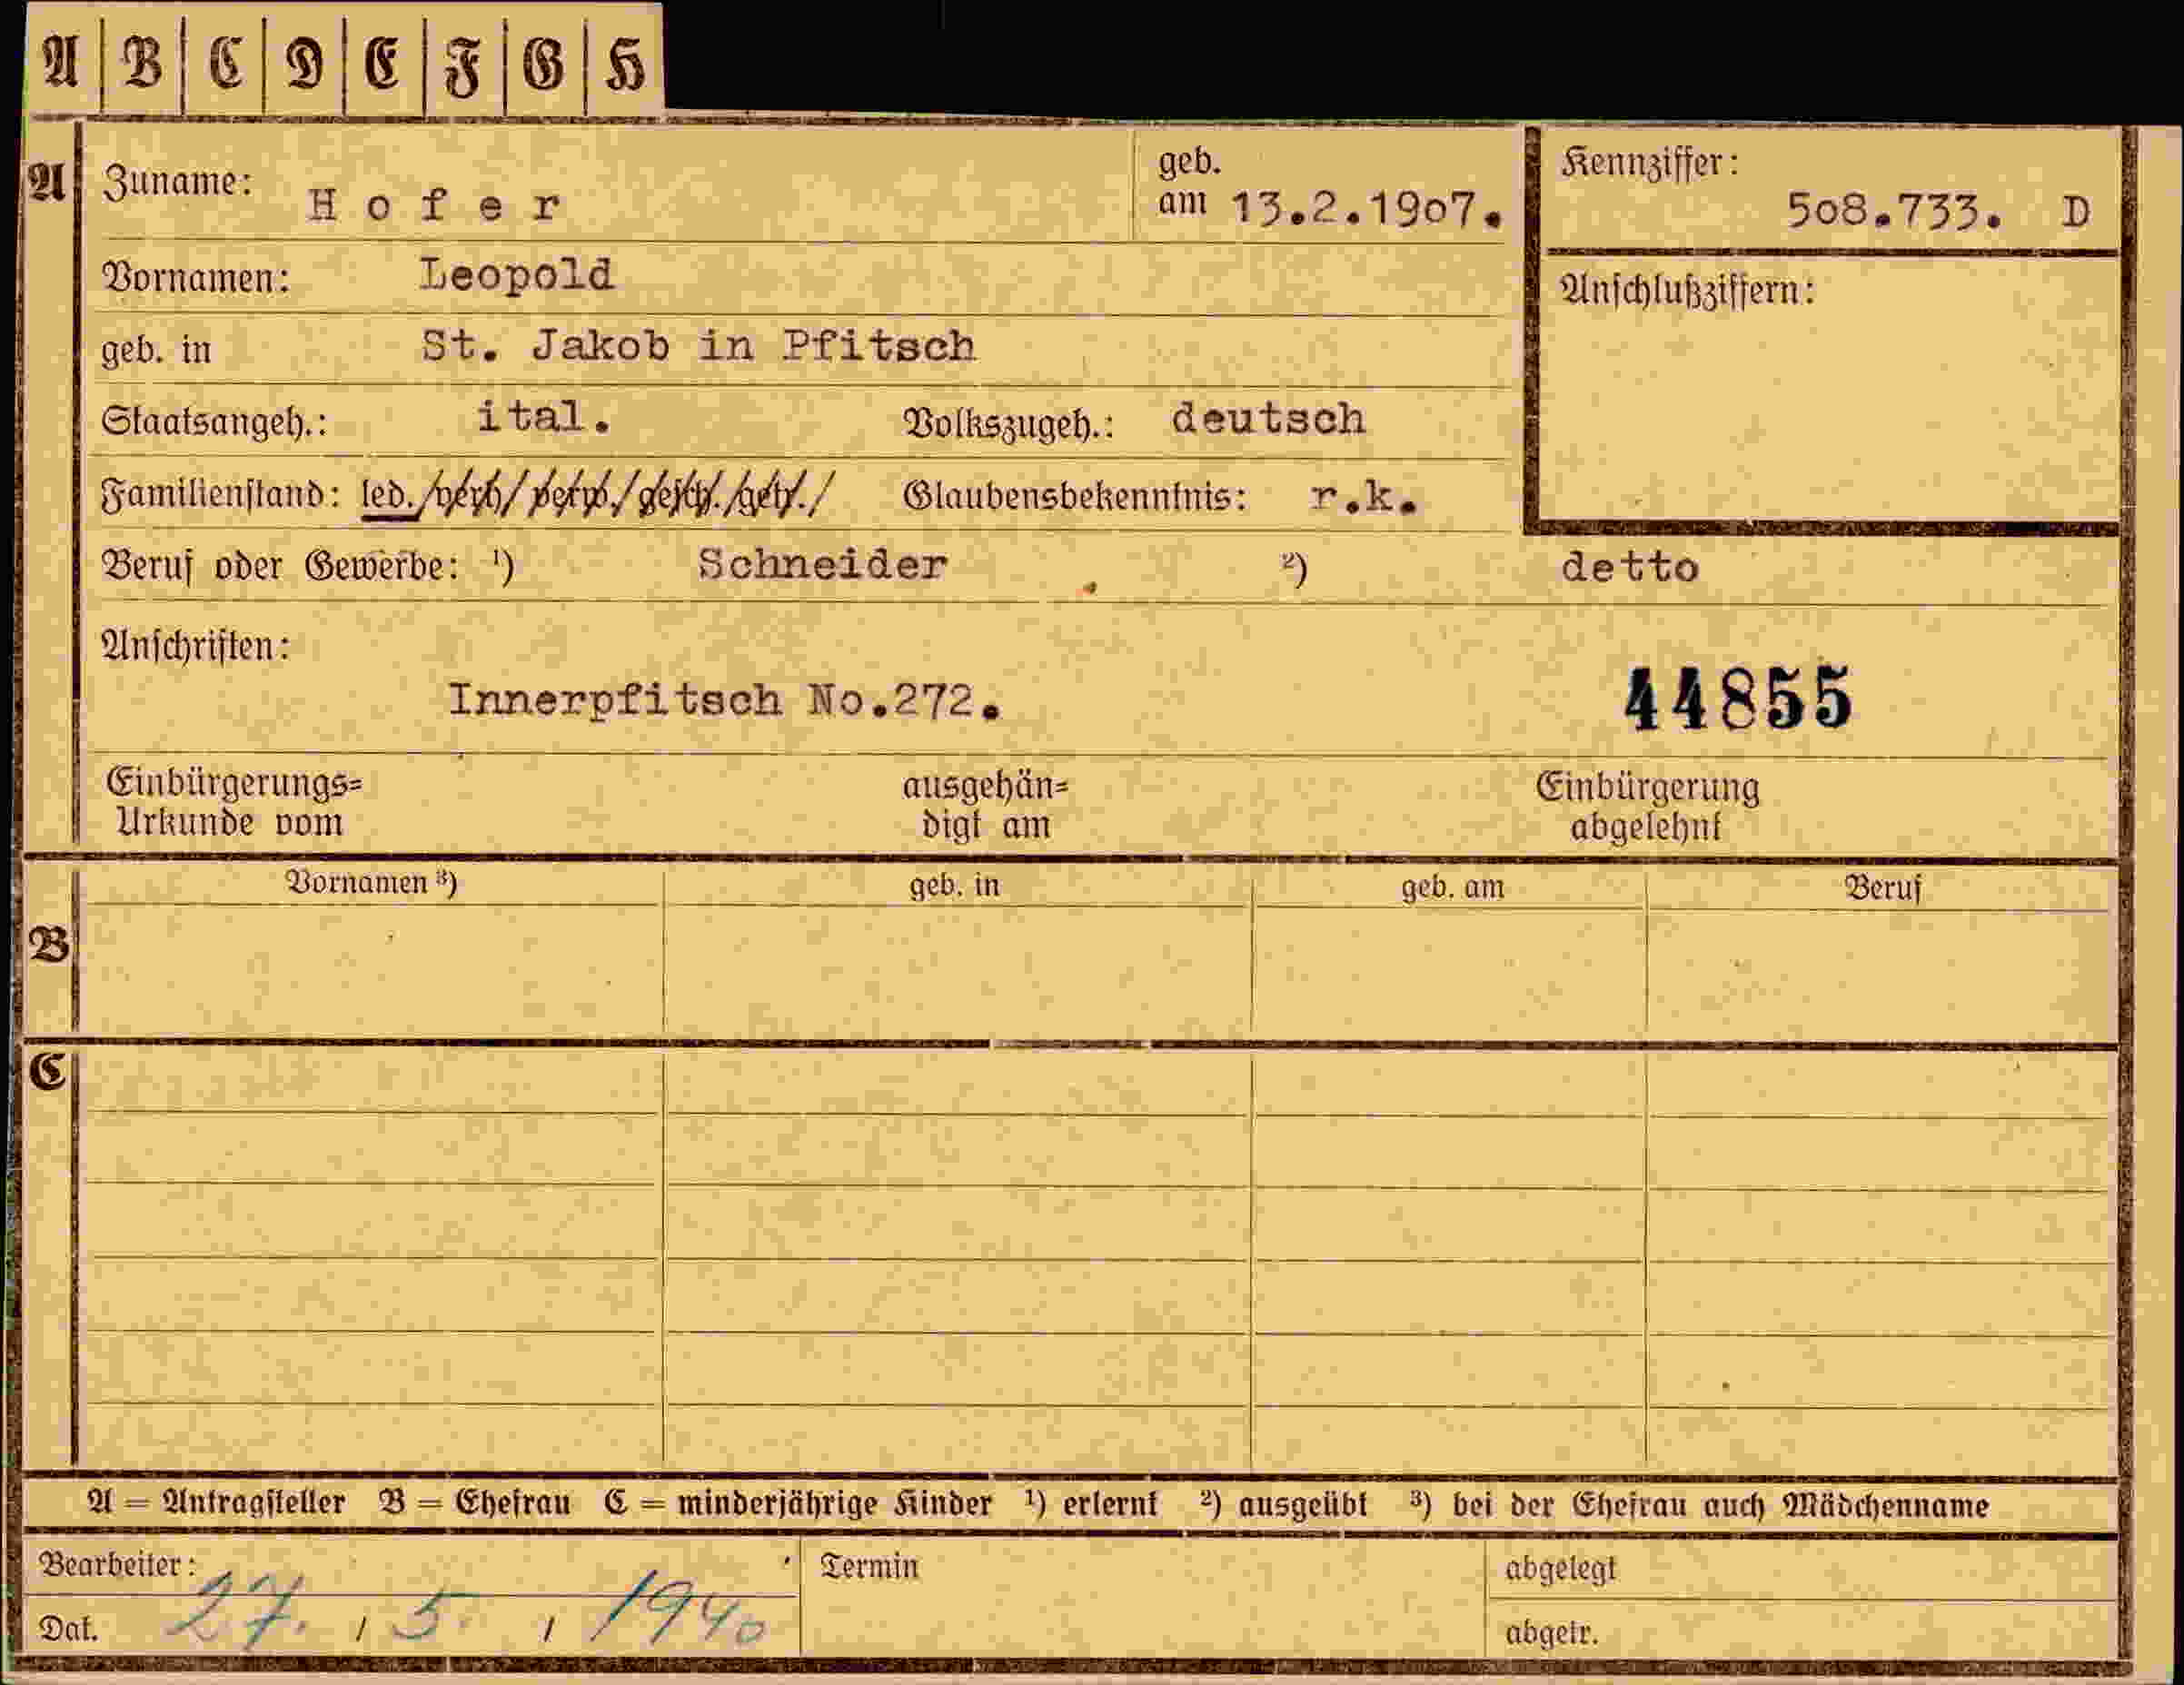 A B C D E F G H
A Zuname: Hofer geb. am 13.2.1907. Kennziffer: 508.733. D
Vornamen: Leopold Anschlußziffern:
geb. in St. Jakob in Pfitsch
Staatsangeh.: ital. Volkszugeh.: deutsch
Familienstand: led./verh/verw./gesch./getr./ Glaubensbekenntnis: r.k.
Beruf oder Gewerbe: ¹) Schneider ²) detto
Anschriften:
Innerpfitsch No.272. 44855
Einbürgerungs= ausgehän= Einbürgerung
Urkunde vom digt am abgelehnt
Vornamen ³) geb. in geb. am Beruf
B
C
A = Antragsteller B = Ehefrau C = minderjährige Kinder ¹) erlernt ²) ausgeübt ³) bei der Ehefrau auch Mädchenname
Bearbeiter: Termin abgelegt
Dat. 27. / 5. / 1940 abgetr.